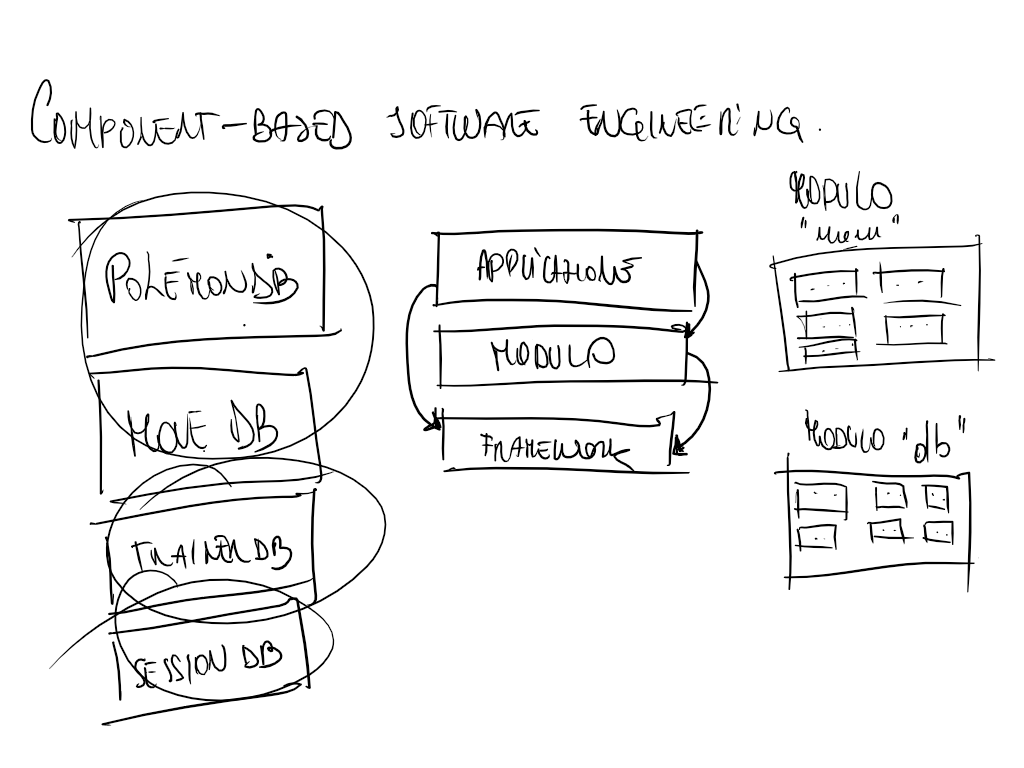 COMPONENT-BASED SOFTWARE ENGINEERING.
POKÉMON DB
MOVE DB
TRAINER DB
SESSION DB
APPLICAZIONE
MODULO
FRAMEWORK
MODULO
"menu"
MODULO "db"